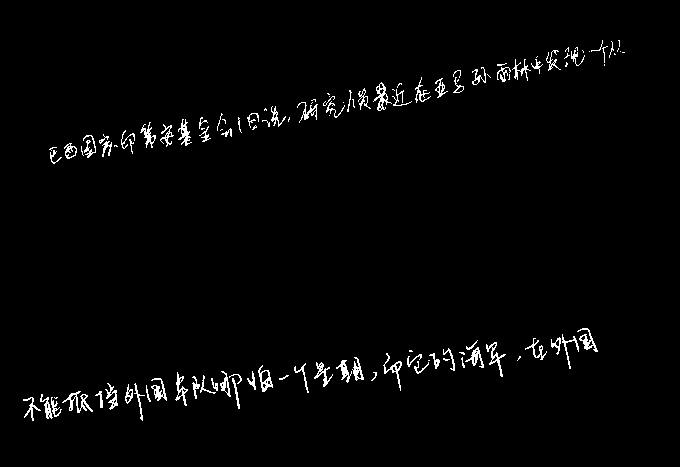 巴西国家印第安基金会1日说,研究人员最近在亚马孙雨林中发现一个从
不能抵挡外国军队哪怕一个星期,而它的海军,在外国